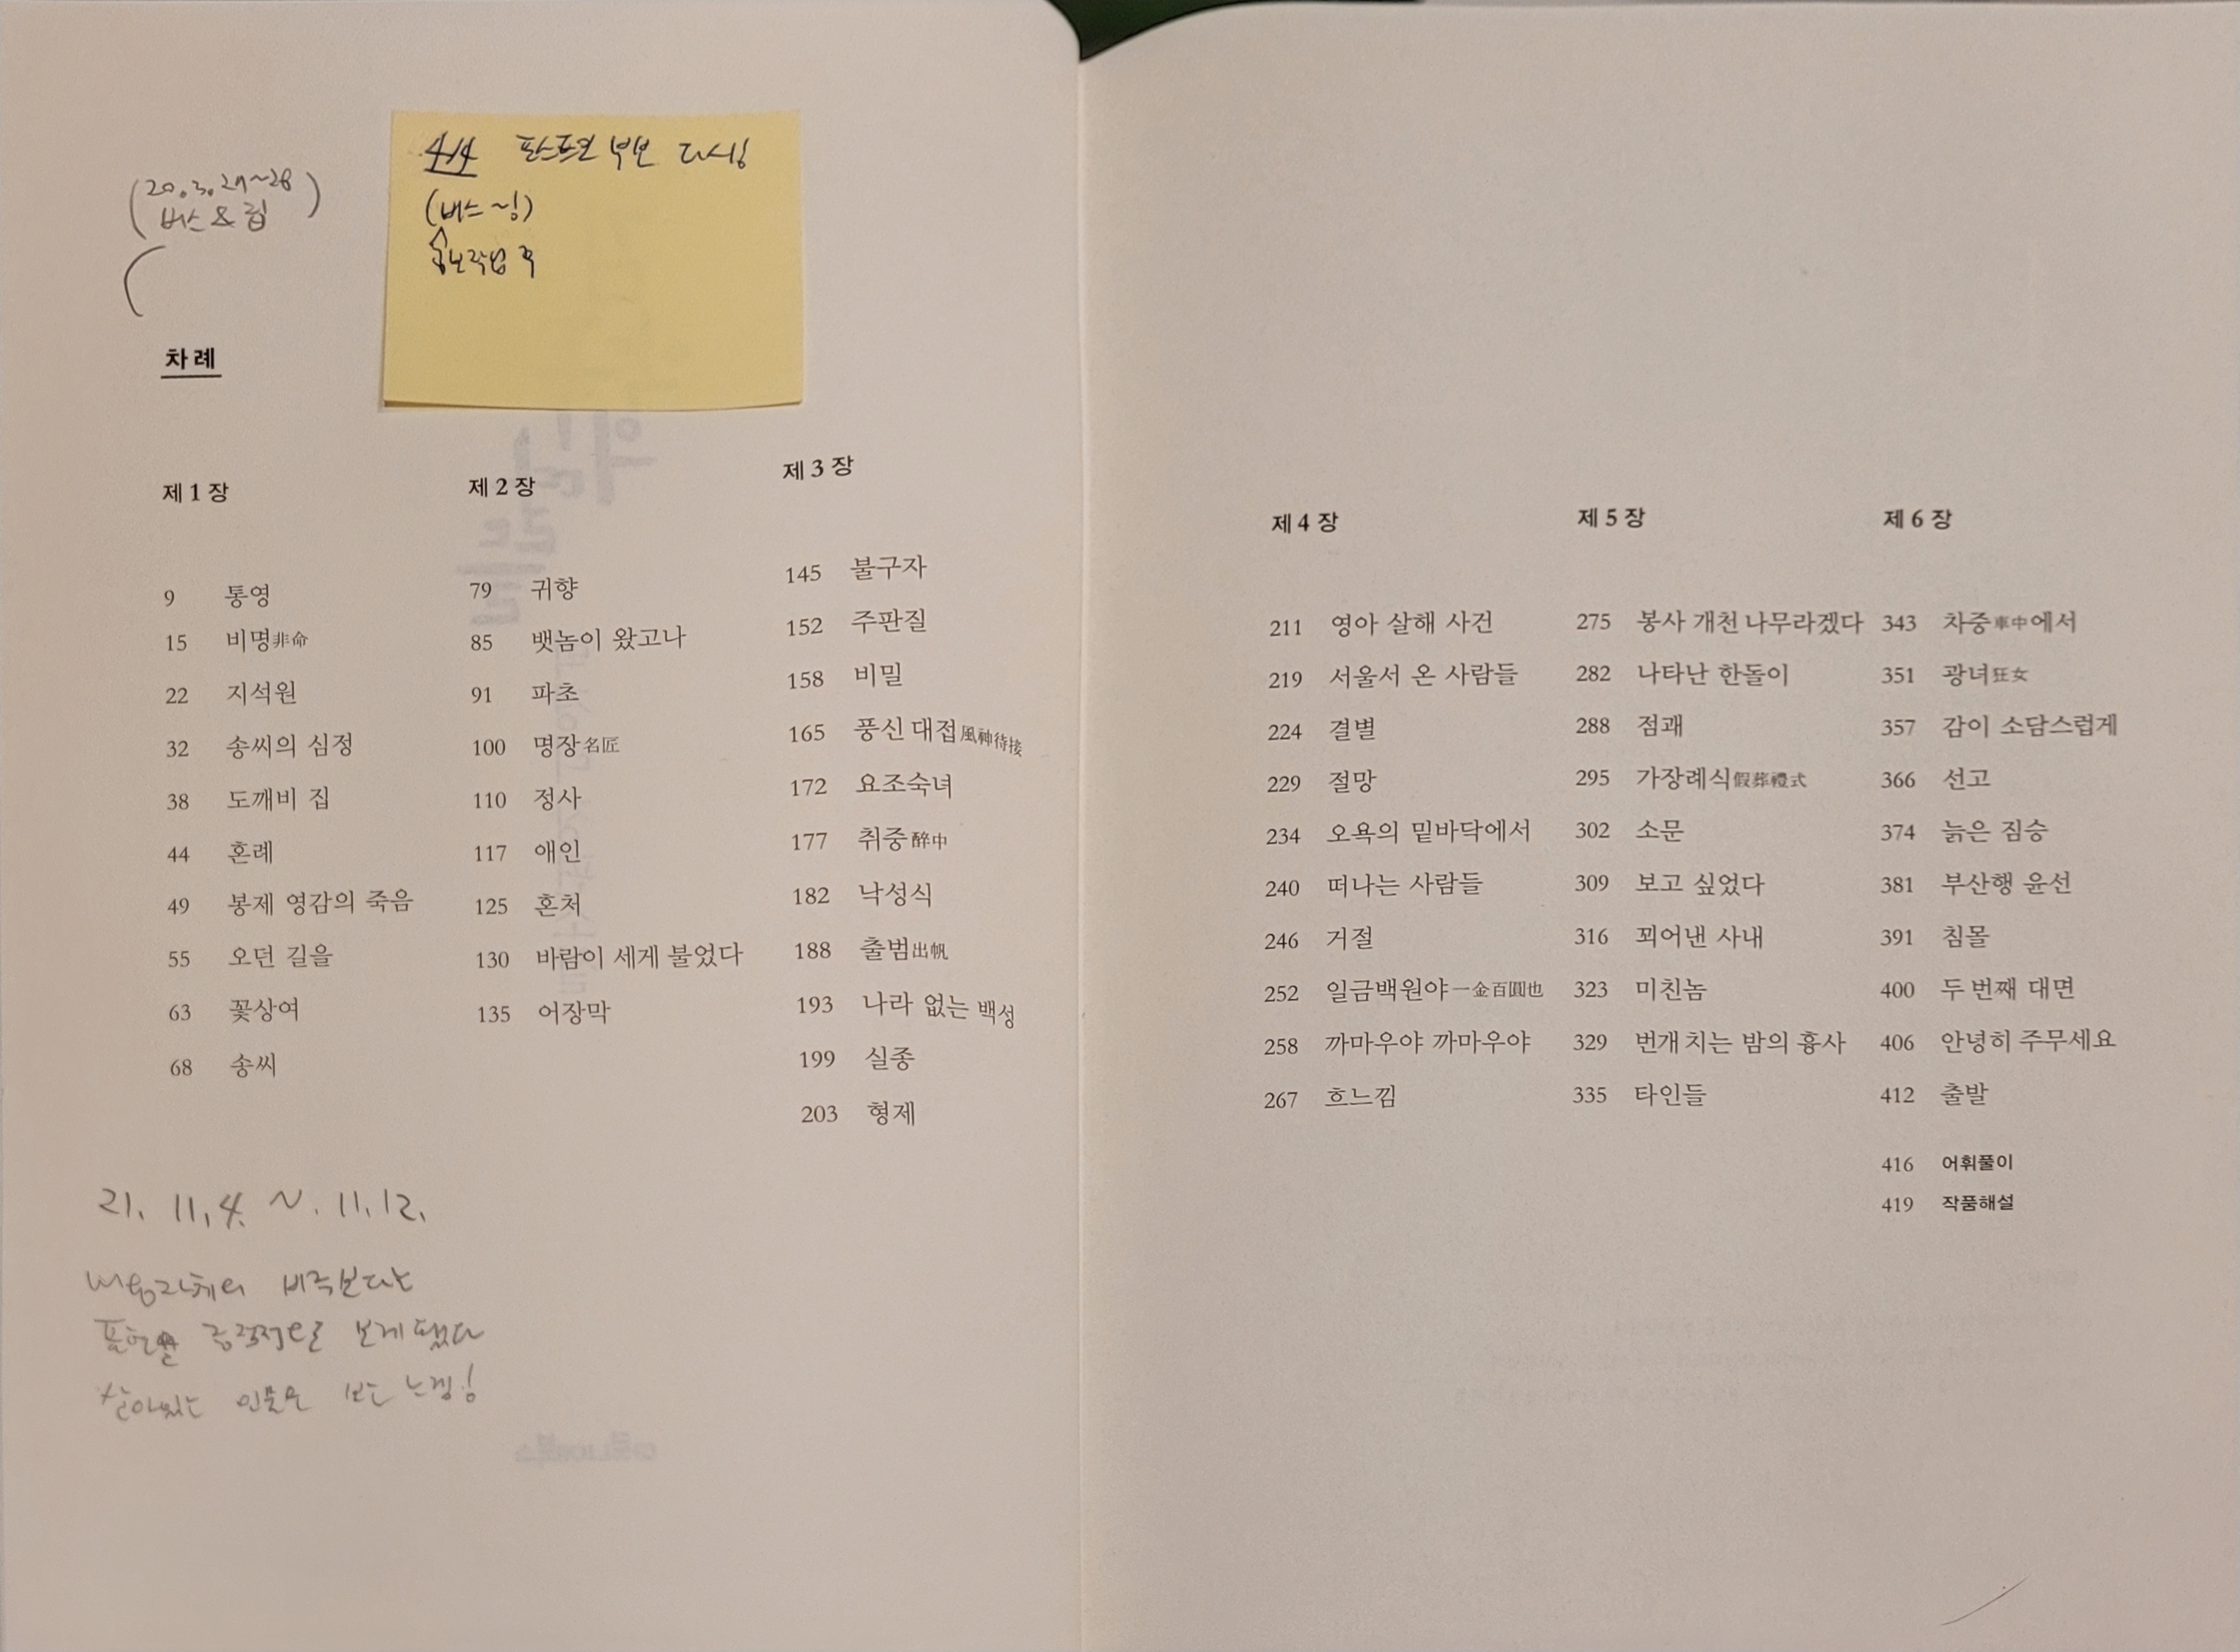 (20.3.27~28
버스 & 집)
4/4
(버스 ~)
차례
제 1 장
9 통영
15 비명非命
22 지석원
32 송씨의 심정
38 도깨비 집
44 혼례
49 봉제 영감의 죽음
55 오던 길을
63 꽃상여
68 송씨
제 2 장
79 귀향
85 뱃놈이 왔고나
91 파초
100 명장名匠
110 정사
117 애인
125 혼처
130 바람이 세게 불었다
135 어장막
제 3 장
145 불구자
152 주판질
158 비밀
165 풍신 대접風神待接
172 요조숙녀
177 취중醉中
182 낙성식
188 출범出帆
193 나라 없는 백성
199 실종
203 형제
21. 11. 4. ~. 11. 12.
내용자체의 비극보다는
표현을 중점적으로 보게 됐다
살아있는 인물은 보는 느낌!
제 4 장
211 영아 살해 사건
219 서울서 온 사람들
224 결별
229 절망
234 오욕의 밑바닥에서
240 떠나는 사람들
246 거절
252 일금백원야一金百圓也
258 까마우야 까마우야
267 흐느낌
제 5 장
275 봉사 개천 나무라겠다
282 나타난 한돌이
288 점괘
295 가장례식假葬禮式
302 소문
309 보고 싶었다
316 꾀어낸 사내
323 미친놈
329 번개 치는 밤의 흉사
335 타인들
제 6 장
343 차중車中에서
351 광녀狂女
357 감이 소담스럽게
366 선고
374 늙은 짐승
381 부산행 윤선
391 침몰
400 두 번째 대면
406 안녕히 주무세요
412 출발
416 어휘풀이
419 작품해설